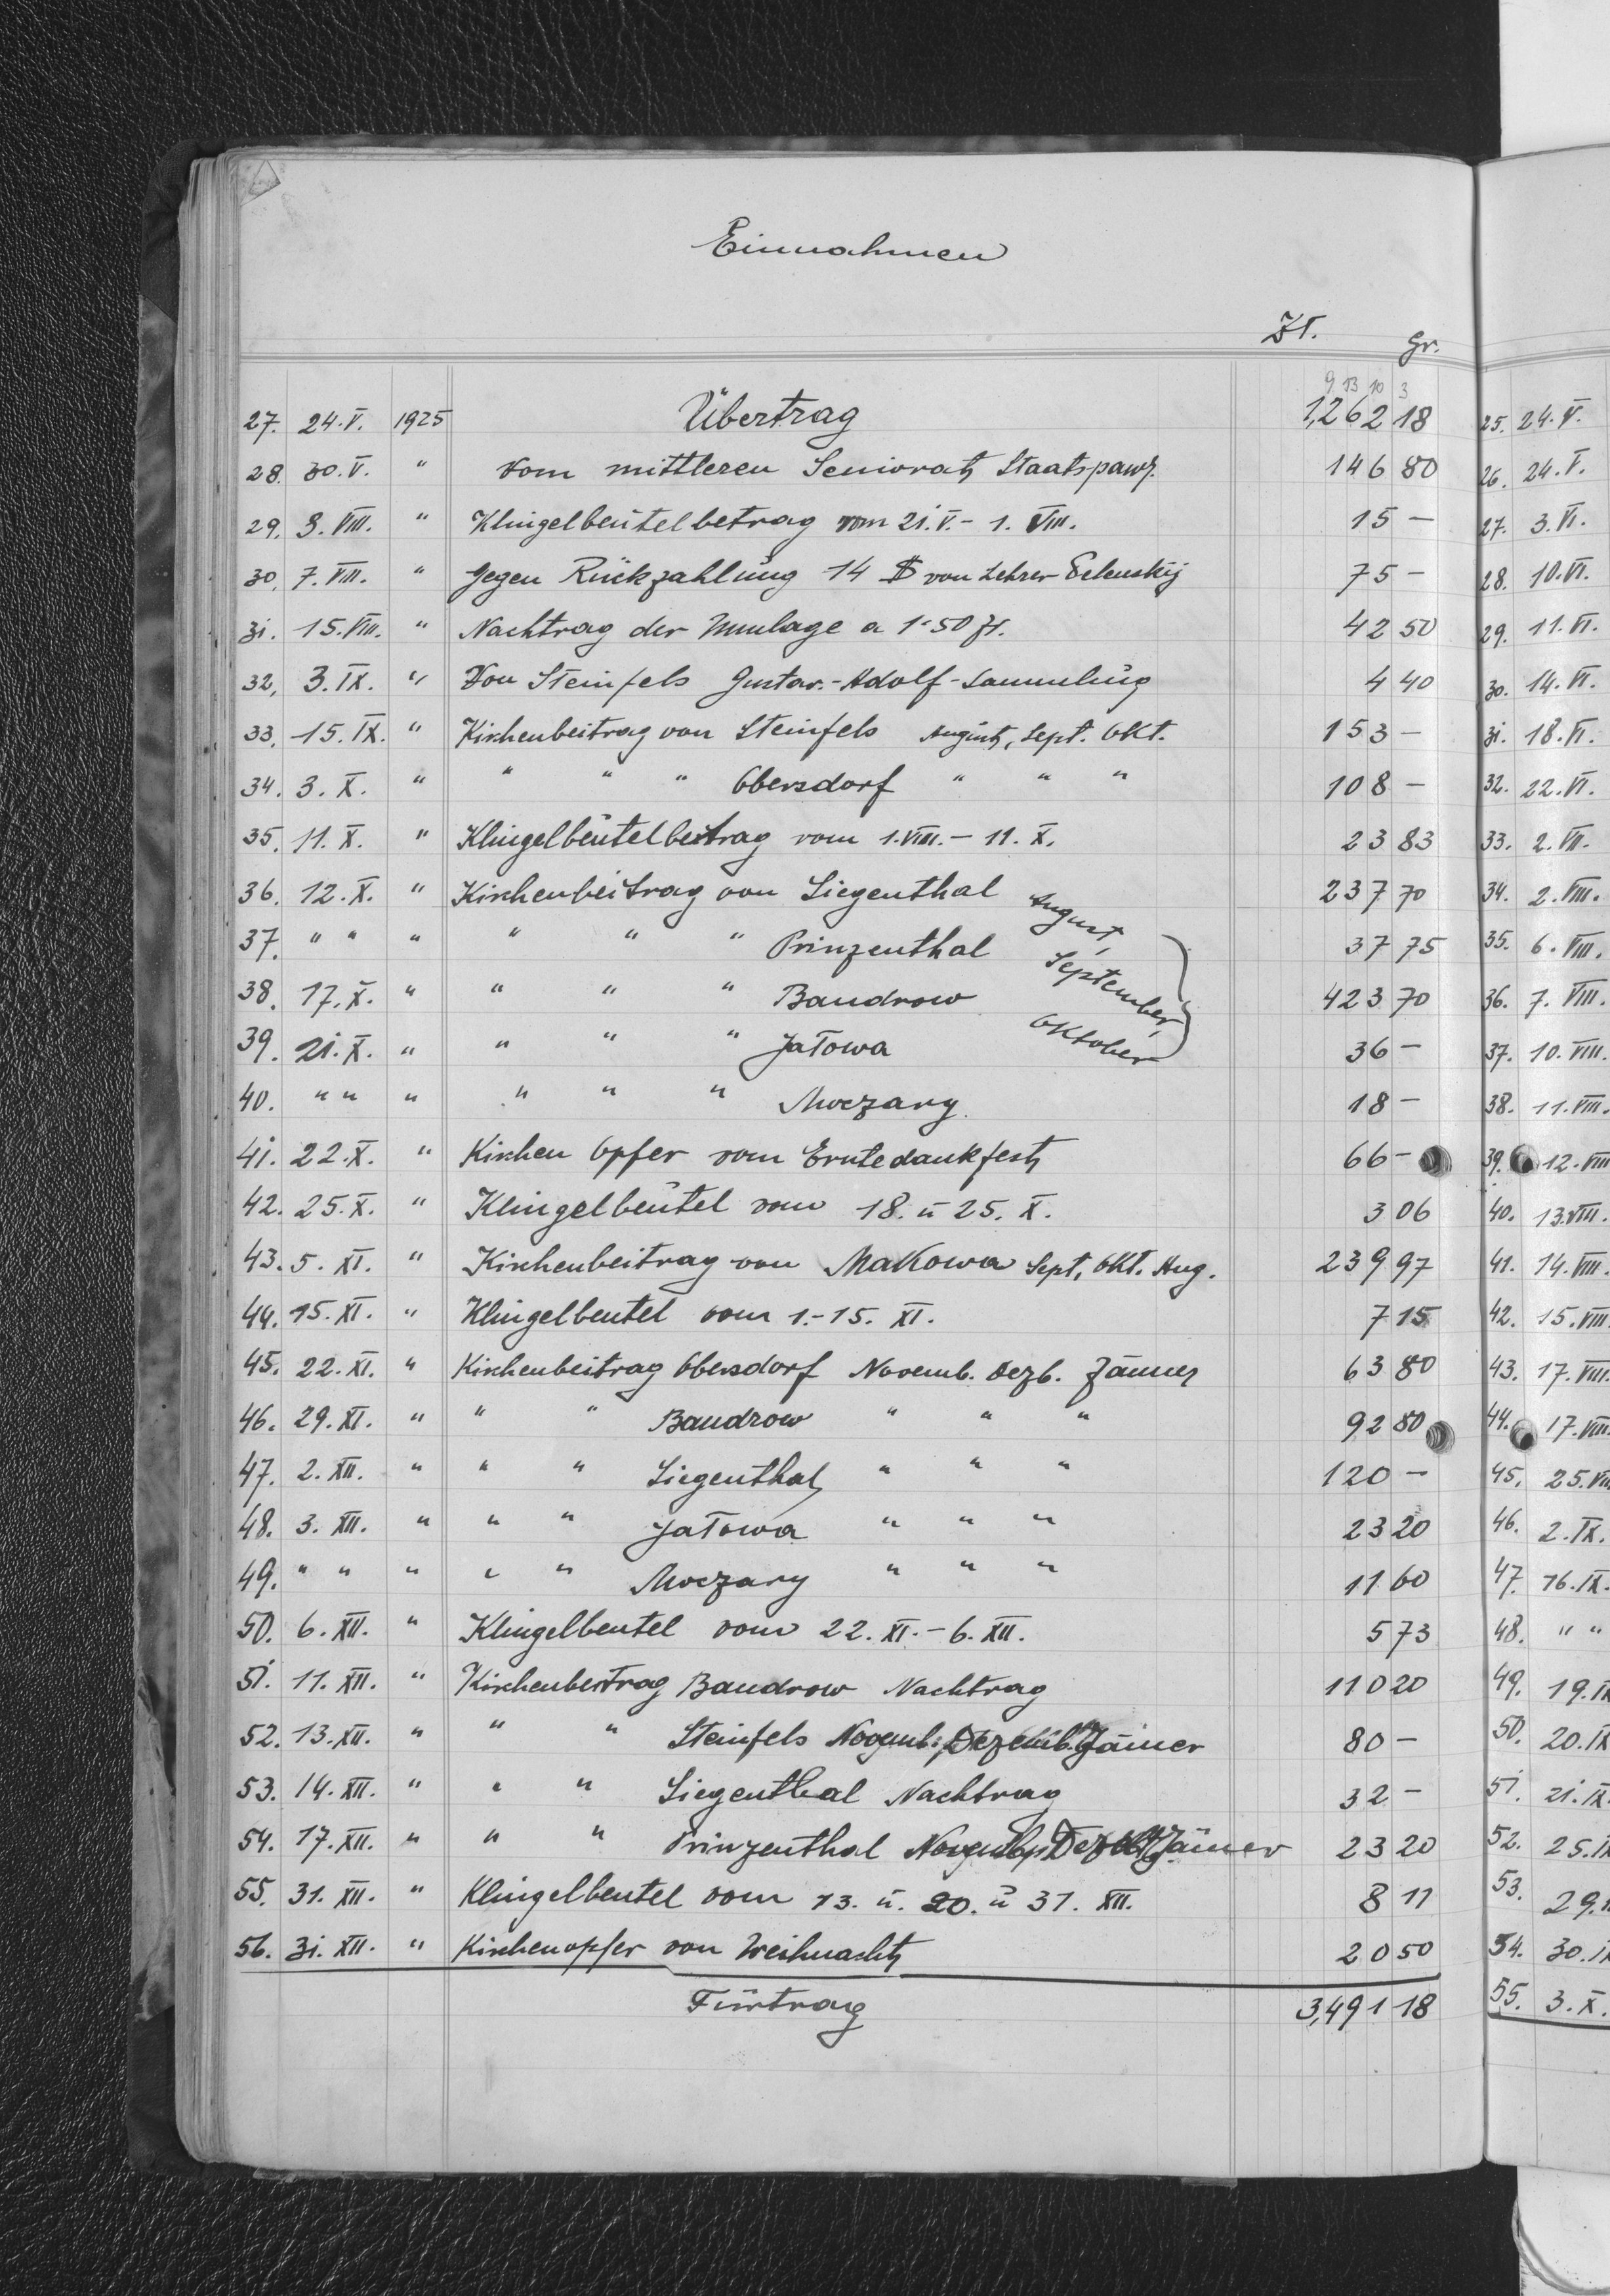 Einnahmen
Zł. Gr.
9 13 10 3
27. 24. V. 1925 Übertrag 1,262 18
28. 30. V. " Vom mittleren Seniorat, Staatspausch. 146 80
29. 3. VIII. " Klingelbeutelbetrag vom 21. V. - 1. VIII. 15 —
30. 7. VIII. " Gegen Rückzahlung 14 $ von Lehrer 75 —
31. 15. VIII. " Nachtrag der Umlage a 1·50 Zł. 42 50
32. 3. IX. " Von Steinfels Gustav-Adolf-Sammlung 4 40
33. 15. IX. " Kirchenbeitrag von Steinfels August, Sept. Okt. 153 —
34. 3. X. " " " " Obersdorf " " " 108 —
35. 11. X. " Klingelbeutelbeitrag vom 1. VIII. - 11. X. 23 83
36. 12. X. " Kirchenbeitrag von Siegenthal August, 237 70
37. " " " " " " Prinzenthal September, 37 75
38. 17. X. " " " " Bandrow Oktober 423 70
39. 21. X. " " " " Jałowa 36 —
40. " " " " " " Moczary 18 —
41. 22. X. " Kirchen Opfer vom Erntedankfest 66 —
42. 25. X. " Klingelbeutel vom 18. u 25. X. 3 06
43. 5. XI. " Kirchenbeitrag von Makowa Sept, Okt. Aug. 239 97
44. 15. XI. " Klingelbeutel vom 1.-15. XI. 7 15
45. 22. XI. " Kirchenbeitrag Obersdorf Novemb. Dezb. Jänner 63 80
46. 29. XI. " " " Bandrow " " " 92 80
47. 2. XII. " " " Siegenthal " " " 120 —
48. 3. XII. " " " Jałowa " " " 23 20
49. " " " " " Moczary " " " 11 60
50. 6. XII. " Klingelbeutel vom 22. XI. - 6. XII. 5 73
51. 11. XII. " Kirchenbeitrag Bandrow Nachtrag 110 20
52. 13. XII. " " " Steinfels Novemb., Dezemb. Jänner 80 —
53. 14. XII. " " " Siegenthal Nachtrag 32 —
54. 17. XII. " " " Prinzenthal Jänner 23 20
55. 31. XII. " Klingelbeutel vom 13. u. 20. u 31. XII. 8 11
56. 31. XII. " Kirchenopfer von Weihnacht 20 50
Fürtrag 3,491 18
25. 24. V.
26. 24. V.
27. 3. VI.
28. 10. VI.
29. 11. VI.
30. 14. VI.
31. 18. VI.
32. 22. VI.
33. 2. VII.
34. 2. VIII.
35. 6. VIII.
36. 7. VIII.
37. 10. VIII.
38. 11. VIII.
39. 12. VIII
40. 13. VIII.
41. 14. VIII.
42. 15. VIII
43. 17. VIII.
44. 17. VIII.
45. 25. VII
46. 2. IX.
47. 16. IX.
48. " "
49. 19. IX
50. 20. IX
51. 21. IX
52. 25. IX
53. 29. I
54. 30. IX
55. 3. X.